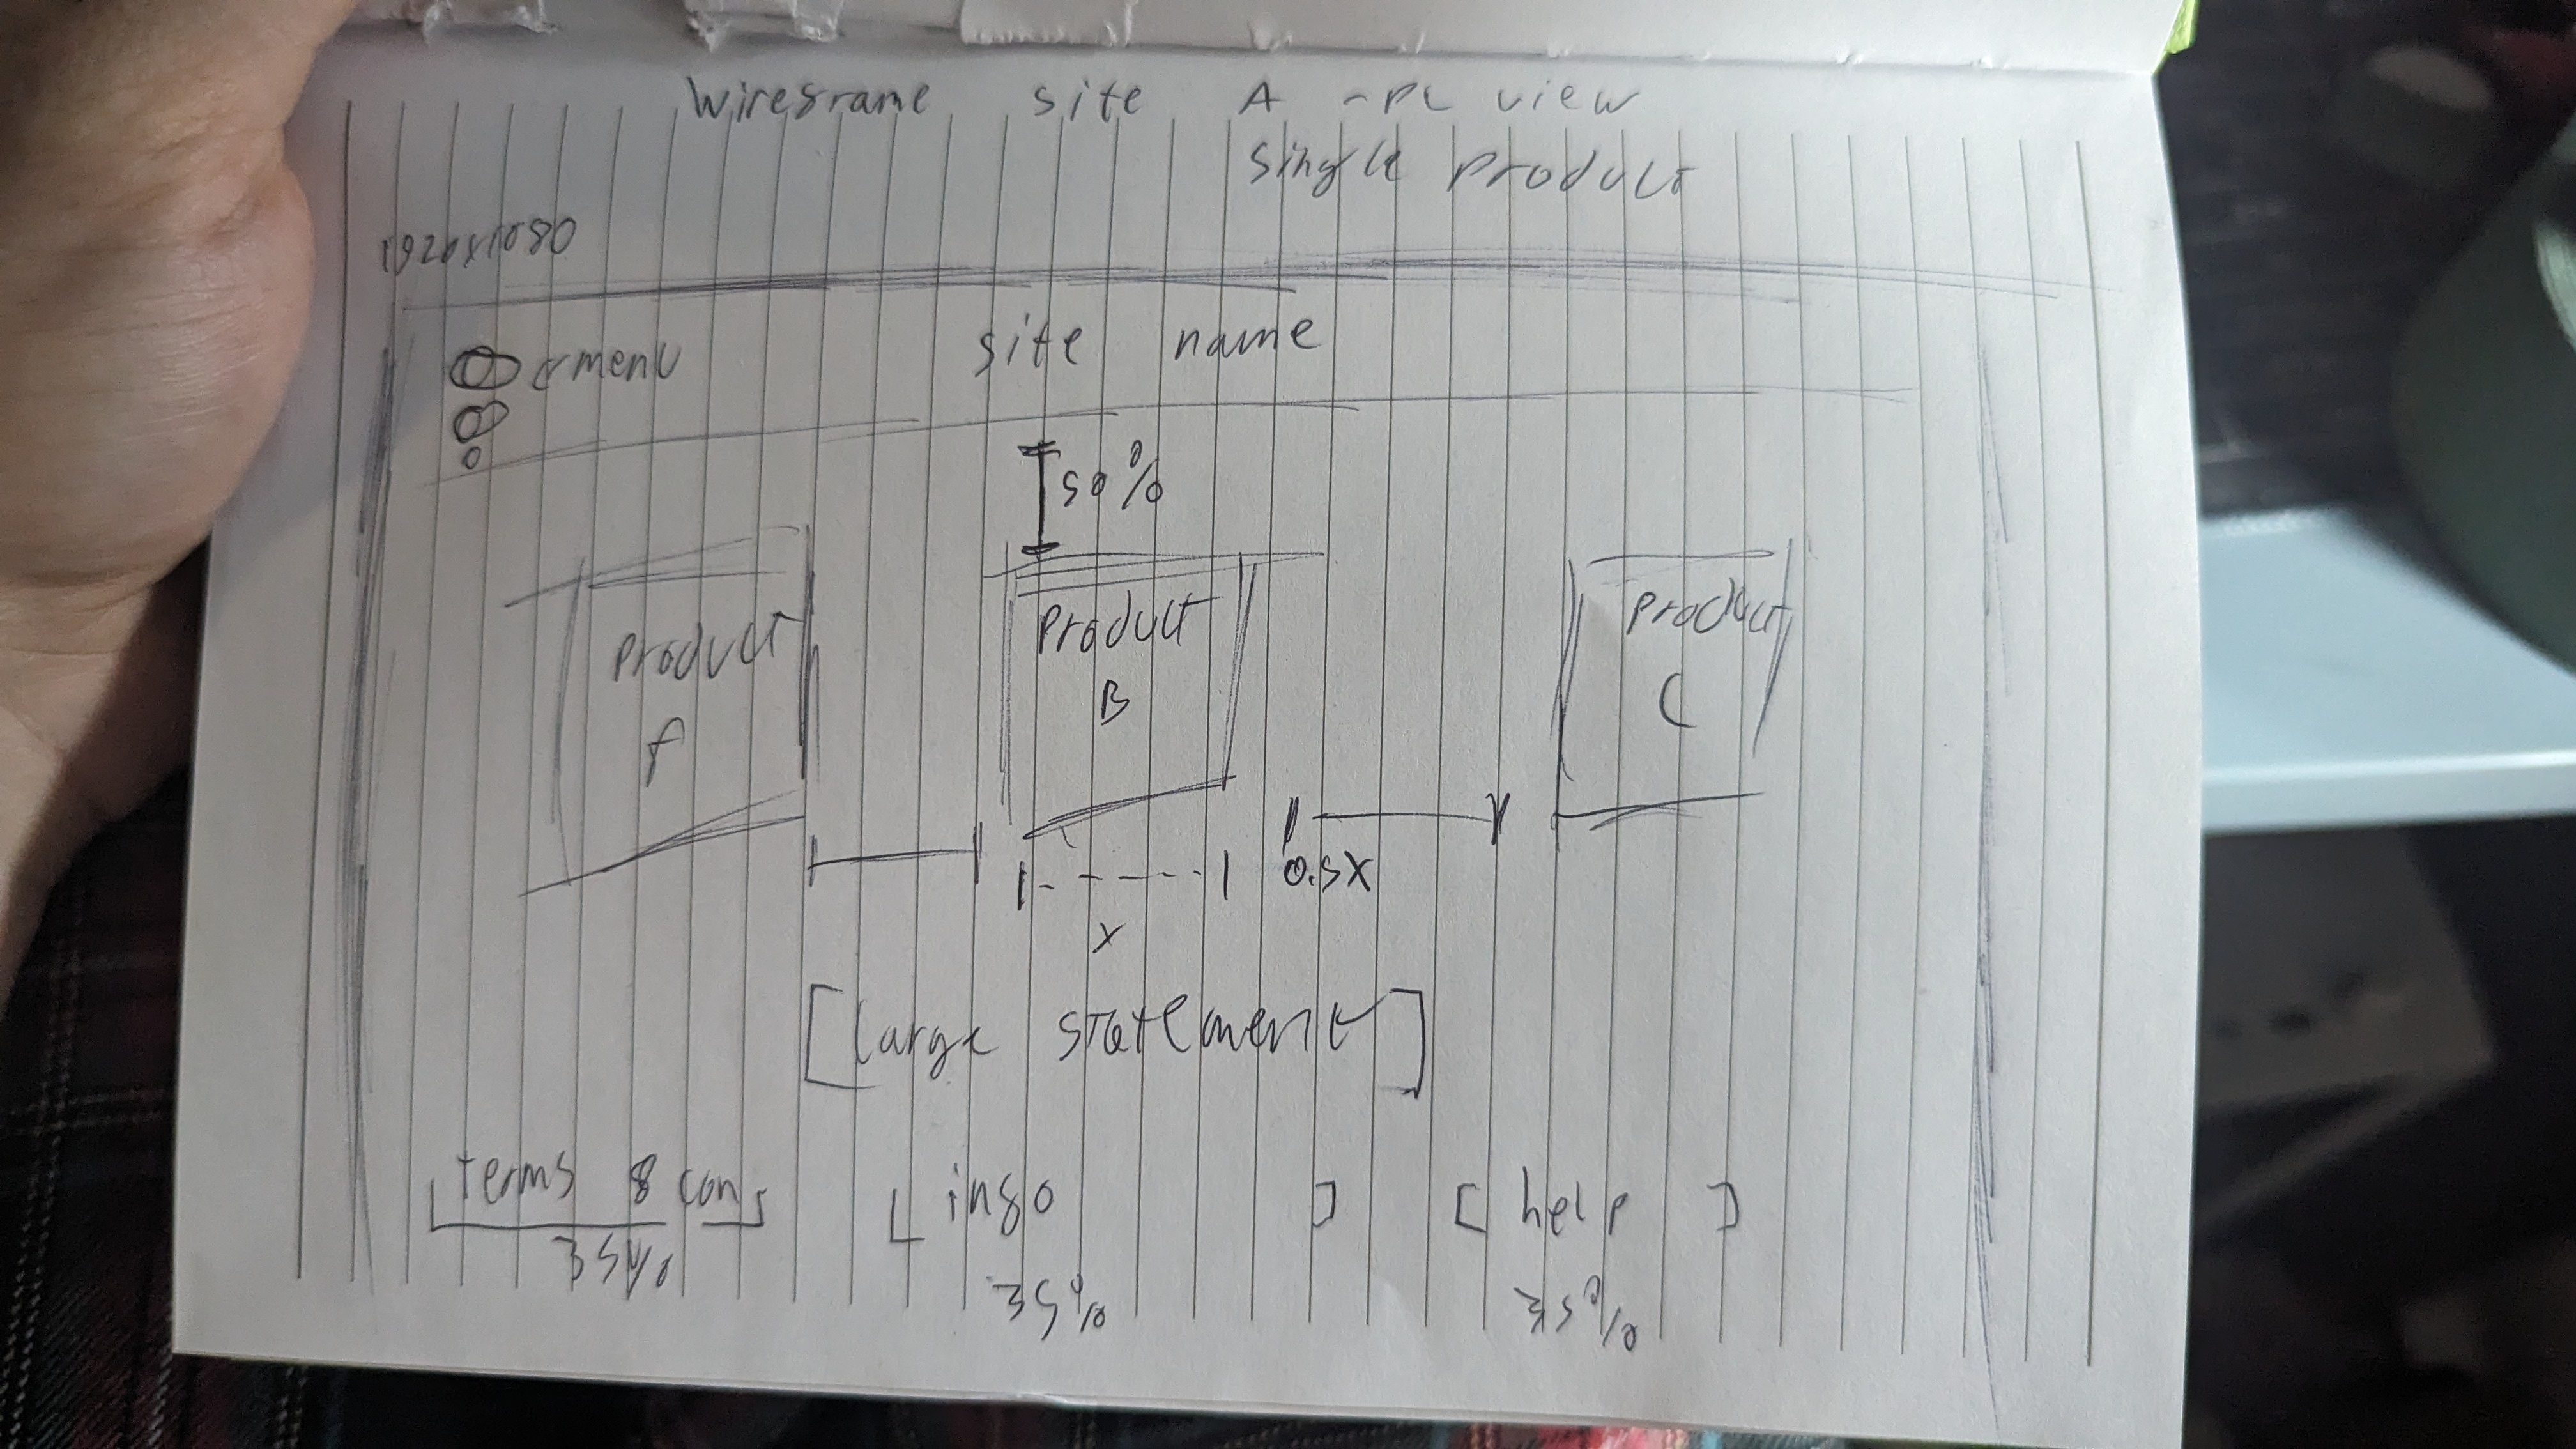 Wireframe site A - PC view
single product
1920x1080
menu site name
50%
product product product
A B C
0.5X
X
[large statement]
[terms & con] [info] [help]
35% 35% 35%